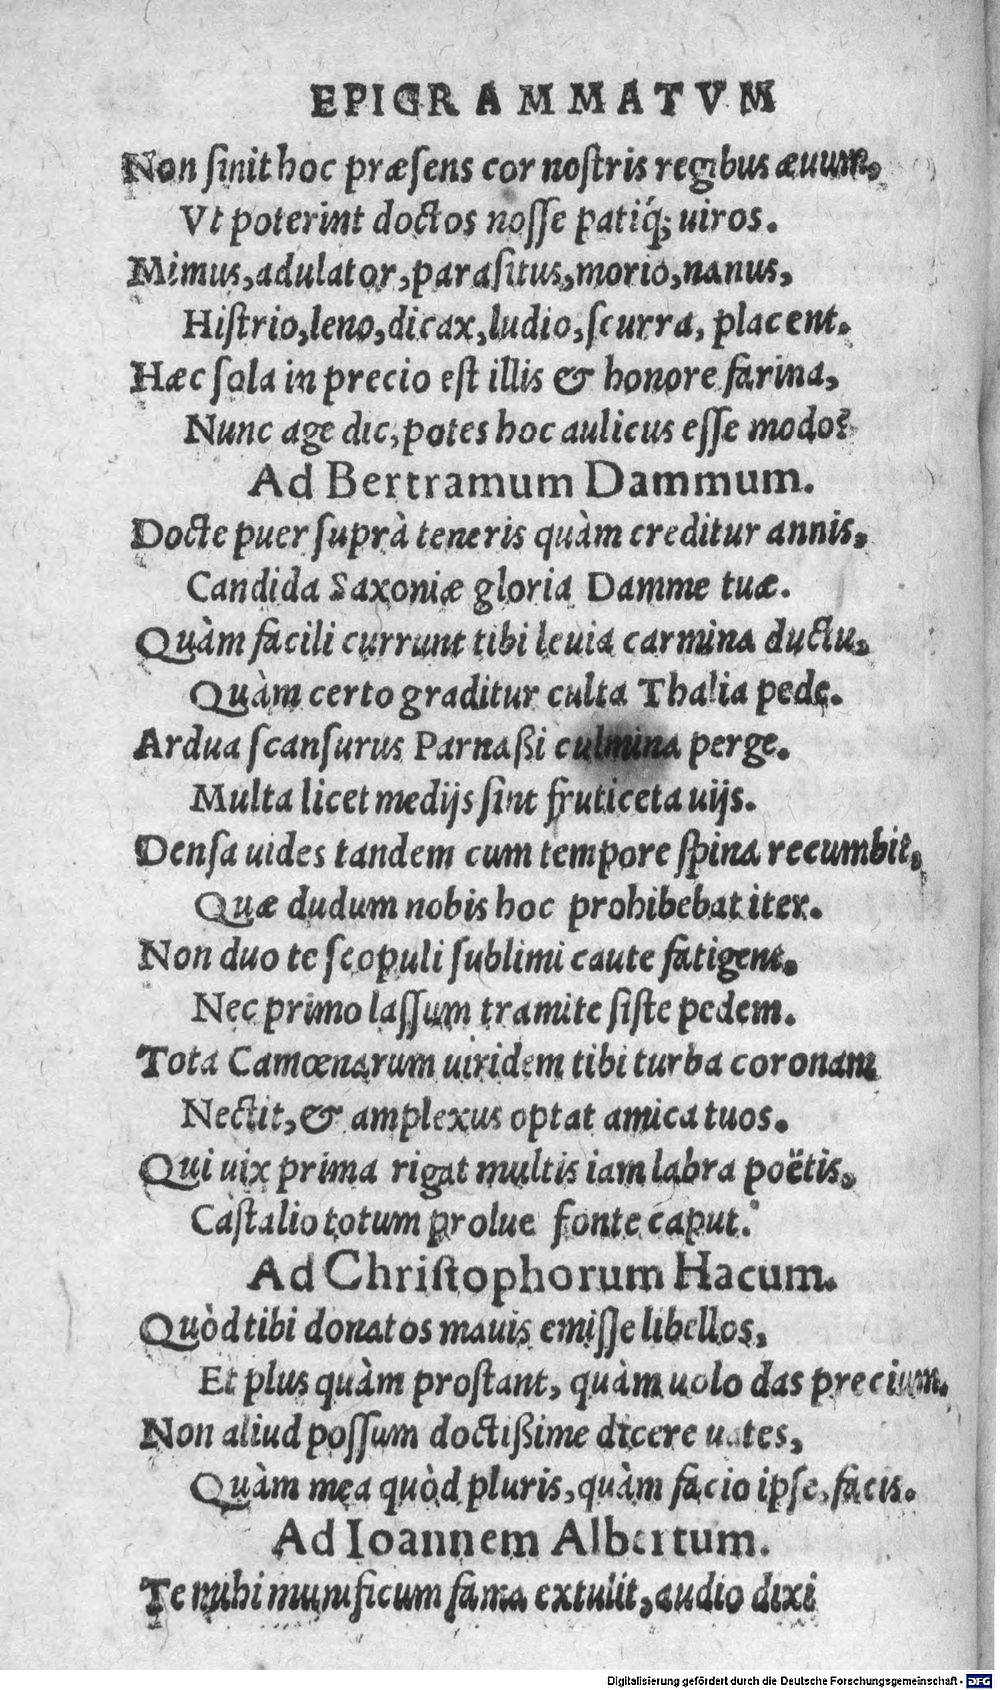 EPIGRAMMATVM
Non ſinit hoc præſens cor noſtris regibus æuum,
Vt poterint doctos noſſe patiq́; uiros.
Mimus, adulator, paraſitus, morio, nanus,
Hiſtrio, leno, dicax, ludio, ſcurra, placent.
Hæc ſola in precio eſt illis & honore farina,
Nunc age dic, potes hoc aulicus eſſe modo?
Ad Bertramum Dammum.
Docte puer ſuprà teneris quàm creditur annis,
Candida Saxoniæ gloria Damme tuæ.
Quàm facili currunt tibi leuia carmina ductu,
Quàm certo graditur culta Thalia pede.
Ardua ſcanſurus Parnaßi culmina perge.
Multa licet medijs ſint fruticeta uijs.
Denſa uides tandem cum tempore ſpina recumbit,
Quæ dudum nobis hoc prohibebat iter.
Non duo te ſcopuli ſublimi caute fatigent,
Nec primo laſſum tramite ſiſte pedem.
Tota Camœnarum uiridem tibi turba coronam
Nectit, & amplexus optat amica tuos.
Qui uix prima rigat multis iam labra poëtis,
Caſtalio totum prolue fonte caput.
Ad Chriſtophorum Hacum.
Quòd tibi donatos mauis emiſſe libellos,
Et plus quàm proſtant, quàm uolo das precium.
Non aliud poſſum doctißime dicere uates,
Quàm mea quòd pluris, quàm facio ipſe, facis.
Ad Ioannem Albertum.
Te mihi munificum fama extulit, audio dixi
Digitalisierung gefördert durch die Deutsche Forschungsgemeinschaft - DFG